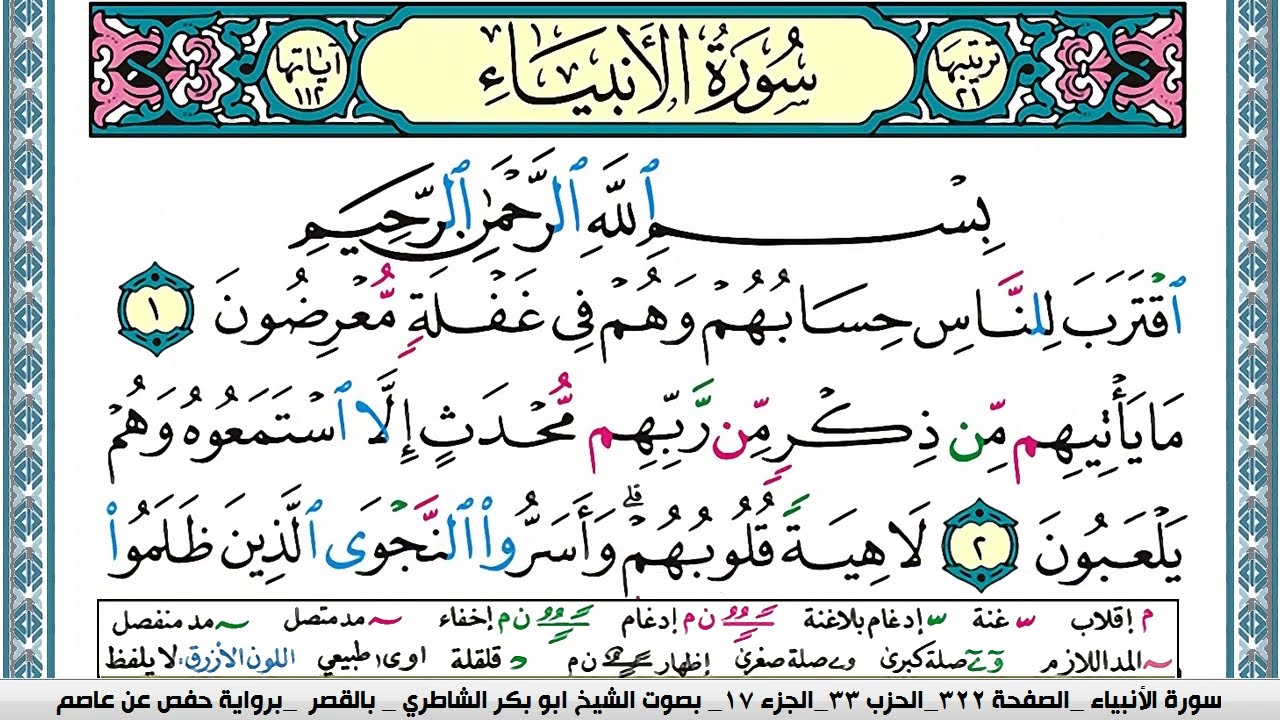 ترتيبها ٢١
سُورَةُ الأَنبِيَاءِ
آياتها ١١٢
بِسْمِ ٱللَّهِ ٱلرَّحْمَٰنِ ٱلرَّحِيمِ
ٱقْتَرَبَ لِلنَّاسِ حِسَابُهُمْ وَهُمْ فِى غَفْلَةٍ مُّعْرِضُونَ ١
مَا يَأْتِيهِم مِّن ذِكْرٍ مِّن رَّبِّهِم مُّحْدَثٍ إِلَّا ٱسْتَمَعُوهُ وَهُمْ
يَلْعَبُونَ ٢ لَاهِيَةً قُلُوبُهُمْ ۗ وَأَسَرُّوا۟ ٱلنَّجْوَى ٱلَّذِينَ ظَلَمُوا۟
م إقلاب غنة إدغام بلاغنة ن م إدغام ن م إخفاء مد متصل مد منفصل
المد اللازم صلة كبرى صلة صغرى إظهار ن م قلقلة اوى طبيعي اللون الأزرق: لا يلفظ
سورة الأنبياء _الصفحة ٣٢٢_الحزب ٣٣_الجزء ١٧_ بصوت الشيخ ابو بكر الشاطري _ بالقصر _برواية حفص عن عاصم